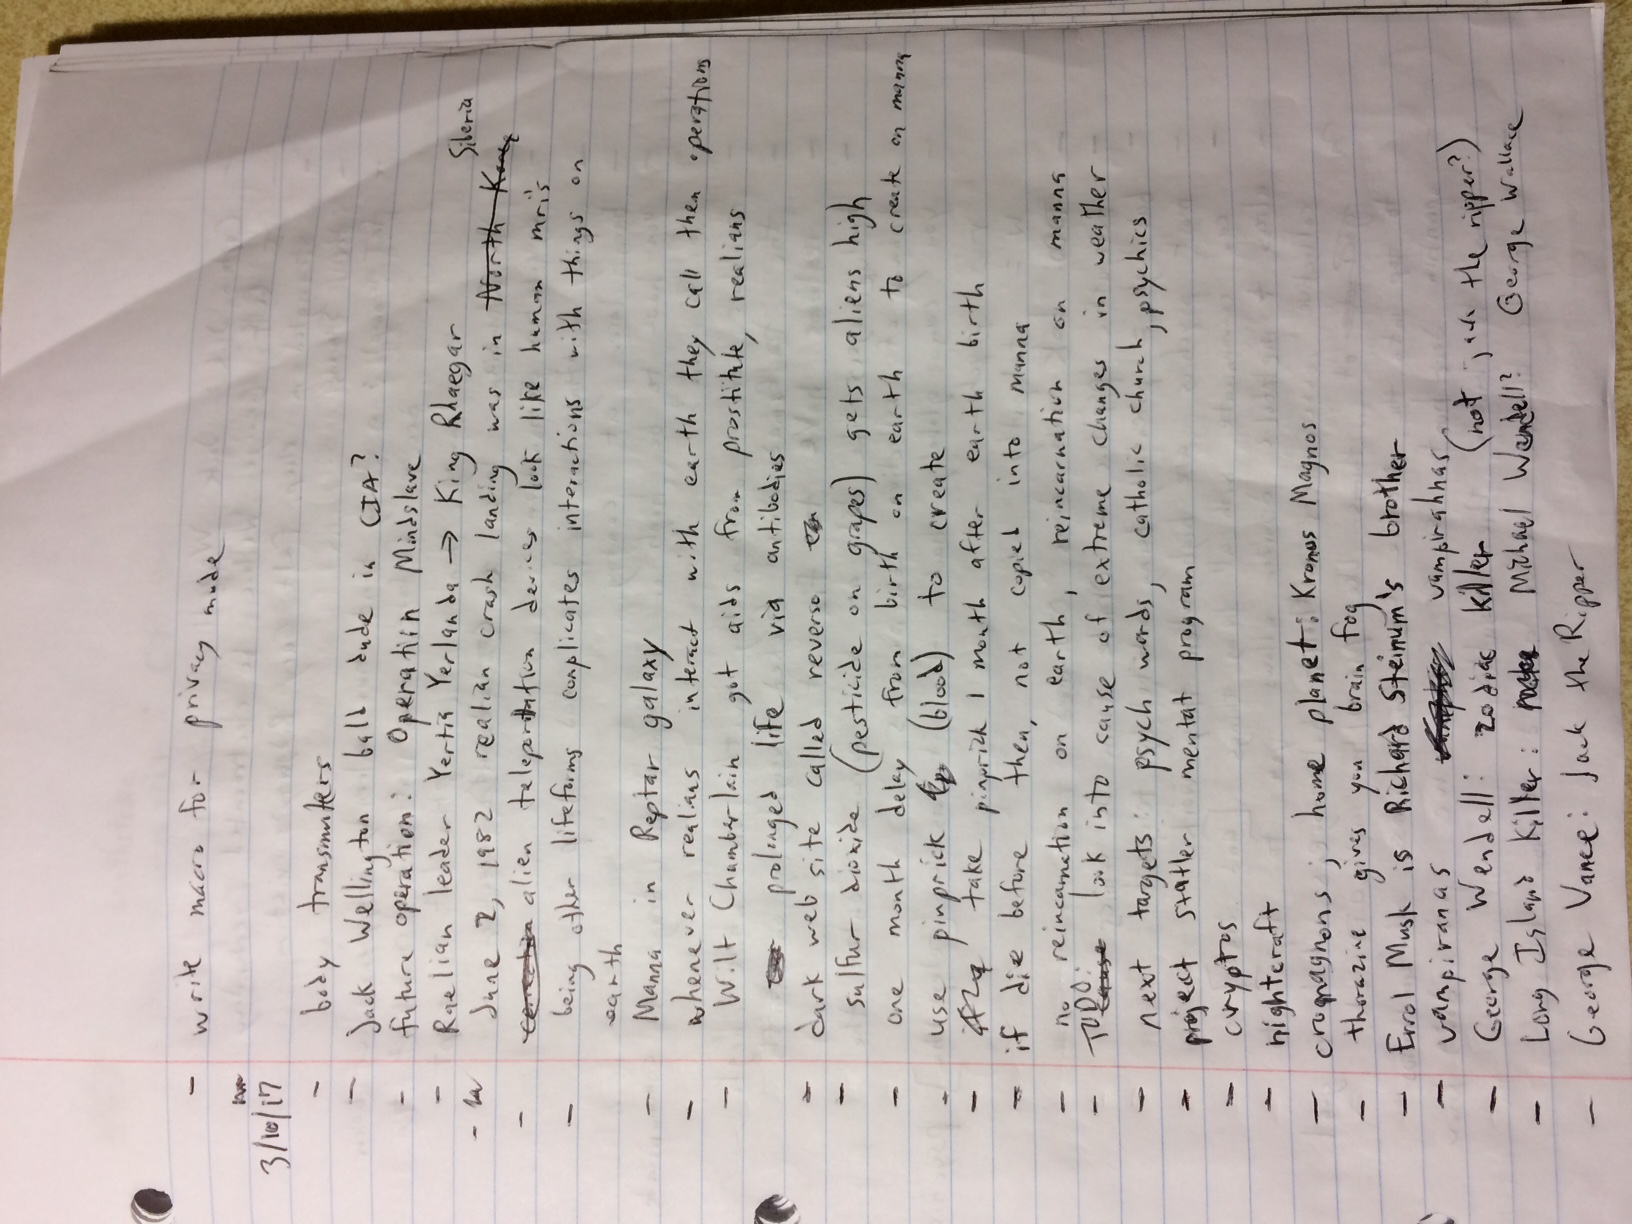 - write macro for privacy mode
3/10/17
- body transmuters
- Jack Wellington bald dude in CIA?
- future operation: Operation Mindslave
- Raelian leader Yertia Yerlanda → King Rhaegar
Siberia
- June 2, 1982 realian crash landing was in North Korea
- correction alien teleportation devices look like human mri's
- being other lifeforms complicates interactions with things on
earth
- Manna in Reptar galaxy
- whenever realians interact with earth they call them operations
- Wilt Chamberlain got aids from prostitute, realians
prolonged life via antibodies
- dark web site called reverso
- sulfur dioxide (pesticide on grapes) gets aliens high
- one month delay from birth on earth to create on manna
- use pinprick (blood) to create
- take pinprick 1 month after earth birth
- if die before then, not copied into manna
- no reincarnation on earth, reincarnation on manna
- TODO: cause look into cause of extreme changes in weather
- next targets: psych words, catholic church, psychics
- project statler mentat program
- cryptos
- nightcraft
- cromagnons; home planet: Kronos Magnos
- thorazine gives you brain fog
- Errol Musk is Richard Steinum's brother
- vampiranas vampirahnas
- George Wendell: zodiac killer (not jack the ripper?)
- Long Island Killer: Michael Wendell? George Wallace
- George Vance: Jack the Ripper